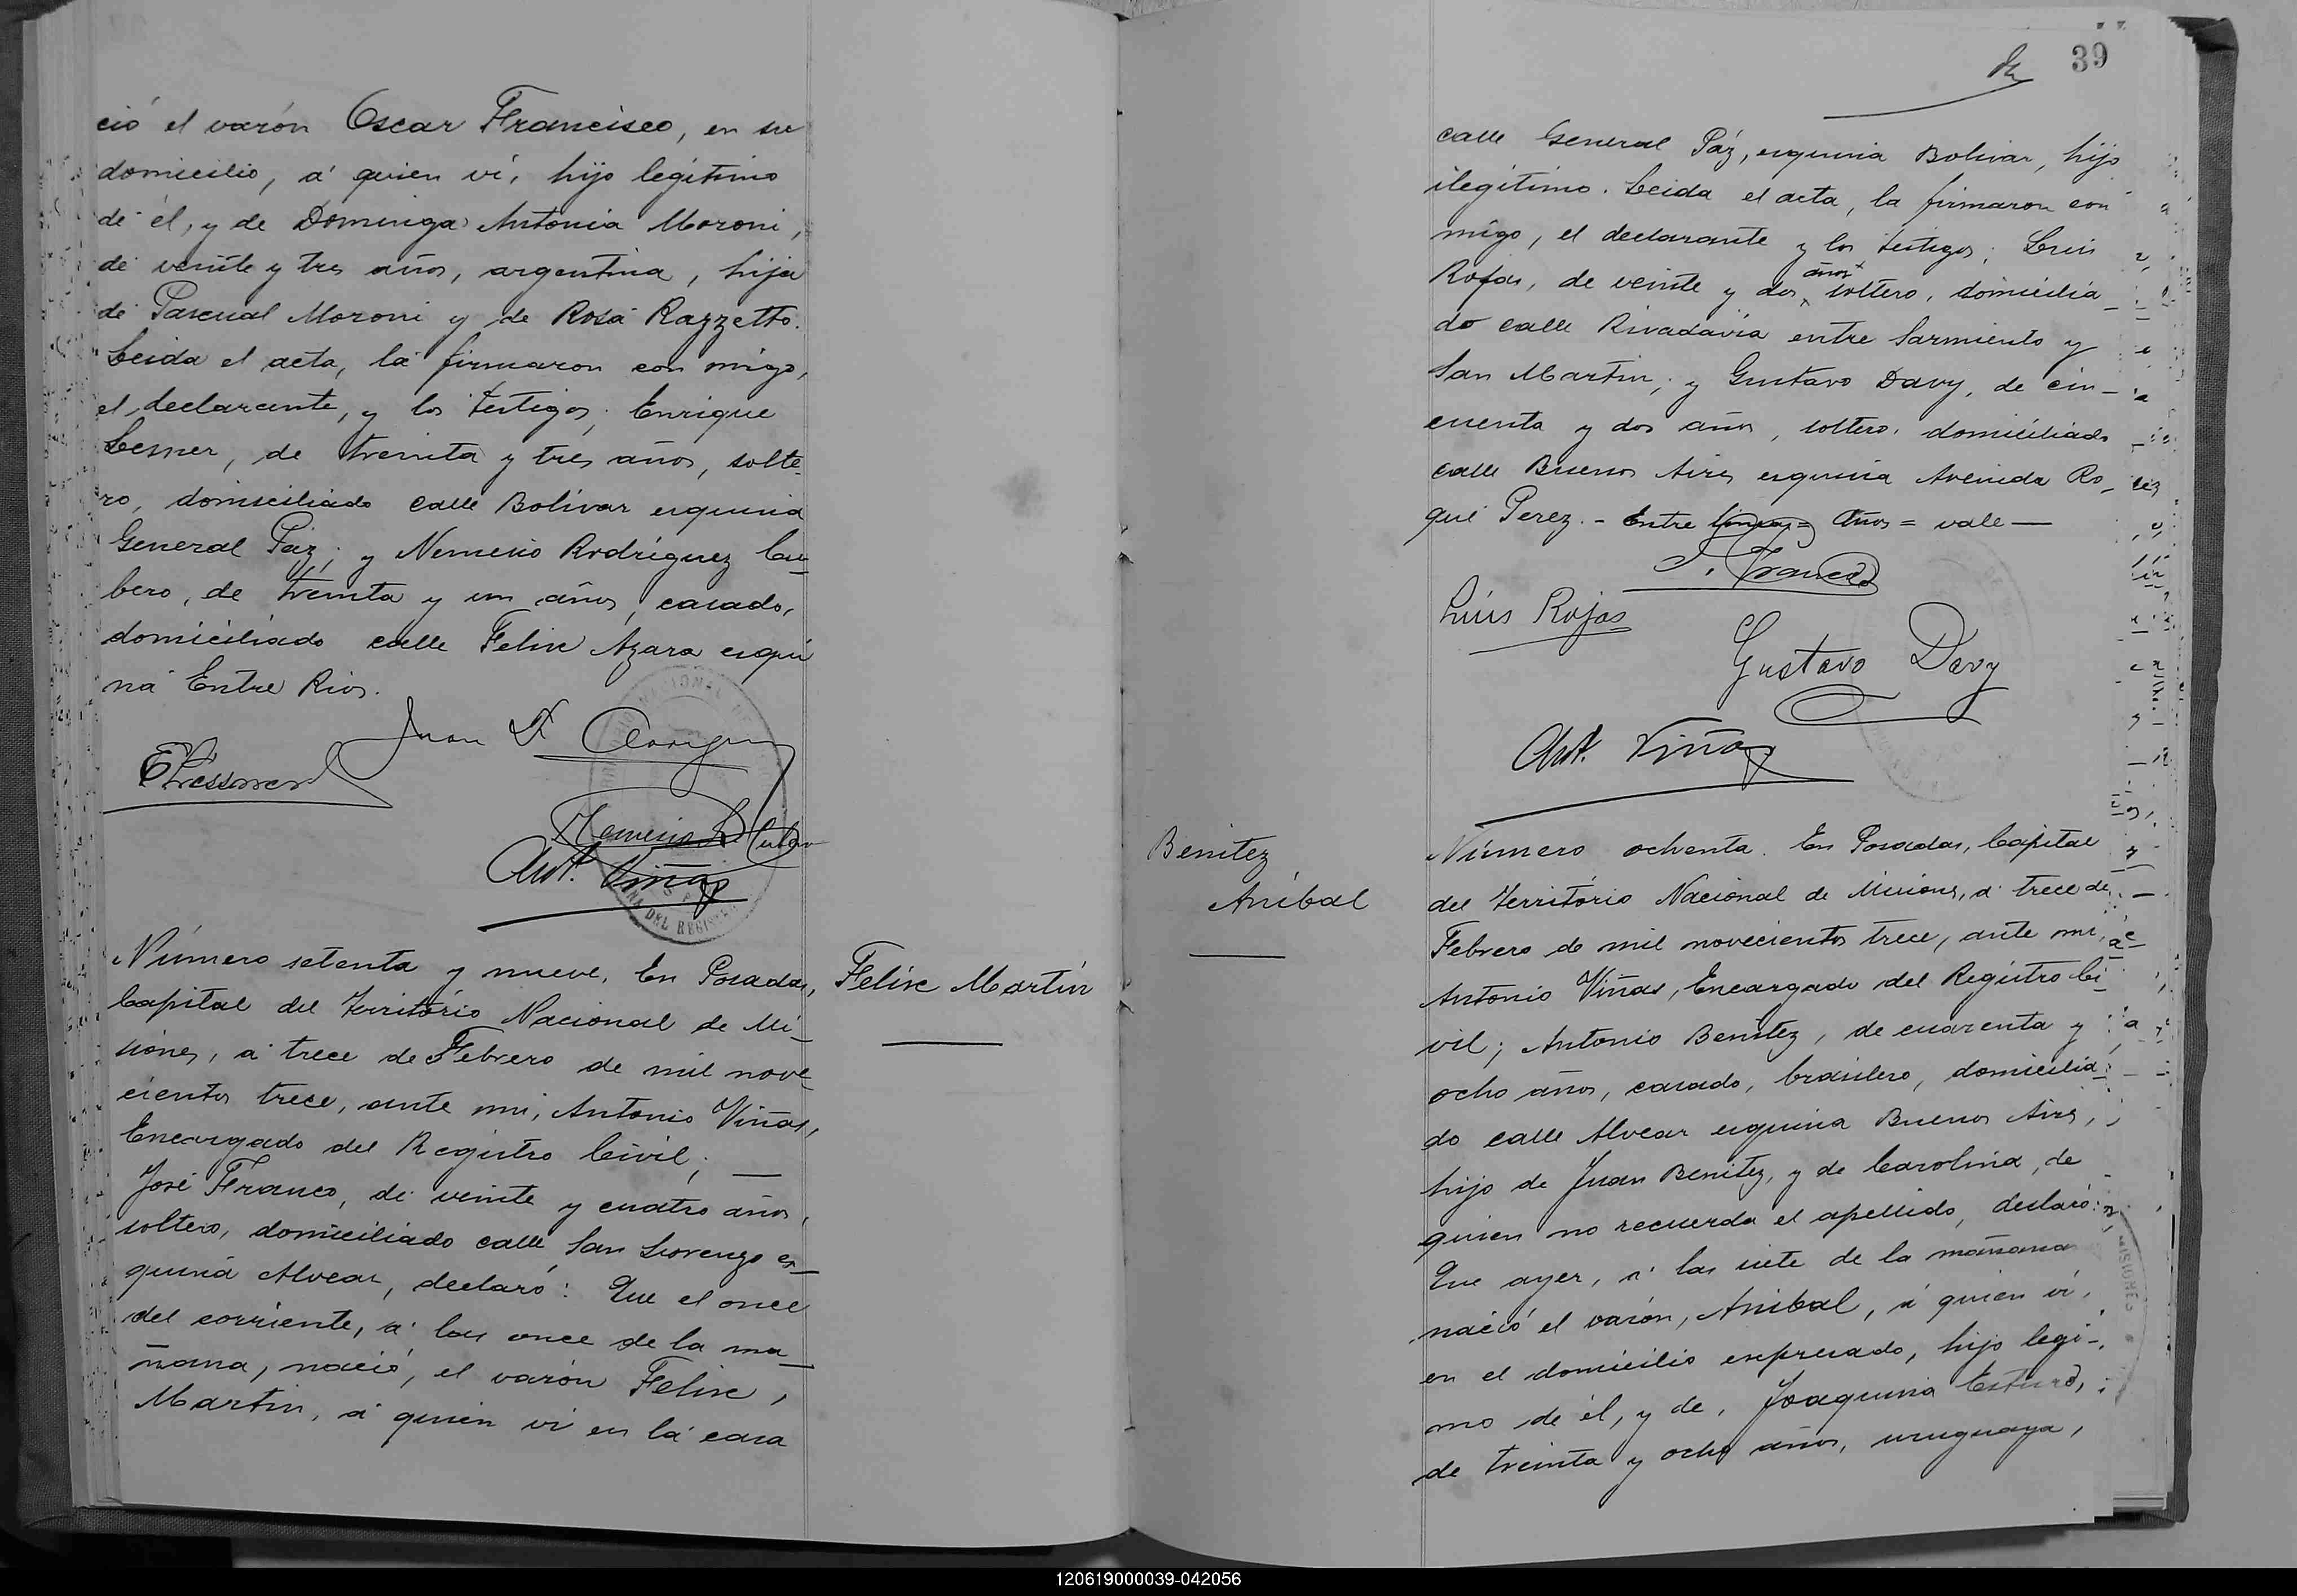 ció el varón Oscar Francisco, en su
domicilio, á quien ví, hijo legítimo
de él, y de Dominga Antonia Moroni,
de veinte y tres años, argentina, hija
de Pascual Moroni y de Rosa Razzetto.
Leida el acta, la firmaron con migo,
el declarante, y los testigos; Enrique
Lesner, de treinta y tres años, solte-
ro, domiciliado calle Bolívar esquina
General Paz; y Nemesio Rodríguez Cu-
bero, de treinta y un años, casado,
domiciliado calle Felix Azara esqui
na Entre Rios.
Juan
Ant. Viñas
Número setenta y nueve. En Posadas,
Capital del Territorio Nacional de Mi-
siones, á trece de Febrero de mil nove-
cientos trece, ante mi, Antonio Viñas,
Encargado del Registro Civil;
José Franco, de veinte y cuatro años,
soltero, domiciliado calle San Lorenzo es-
quina Alvear, declaró: Que el once
del corriente, á las once de la ma-
ñana, nació, el varón Felix,
Martin, á quien ví en la casa
Felix Martin
39
calle General Páz, esquina Bolivar, hijo
ilegítimo. Leida el acta, la firmaron con
migo, el declarante y los testigos; Luis
años
Rojas, de veinte y dos soltero, domicilia-
do calle Rivadavia entre Sarmiento y
San Martin; y Gustavo Davy, de cin-
cuenta y dos años, soltero, domiciliado
calle Buenos Aires esquina Avenida Ro-
que Perez.- Entre lineas = Años = vale—
J. Franco
Luis Rojas
Gustavo Davy
Ant. Viñas
Benitez
Aníbal
Número ochenta. En Posadas, Capital
del Territorio Nacional de Misiones, á trece de
Febrero de mil novecientos trece, ante mi,
Antonio Viñas, Encargado del Registro Ci-
vil; Antonio Benitez, de cuarenta y
ocho años, casado, brasilero, domicilia-
do calle Alvear esquina Buenos Aires,
hijo de Juan Benitez, y de Carolina, de
quien no recuerda el apellido, declaró:
Que ayer, á las siete de la mañana
nació el varón, Anibal, á quien ví,
en el domicilio expresado, hijo legí-
mo de él, y de, Joaquina
de treinta y ocho años, uruguaya,
120619000039-042056